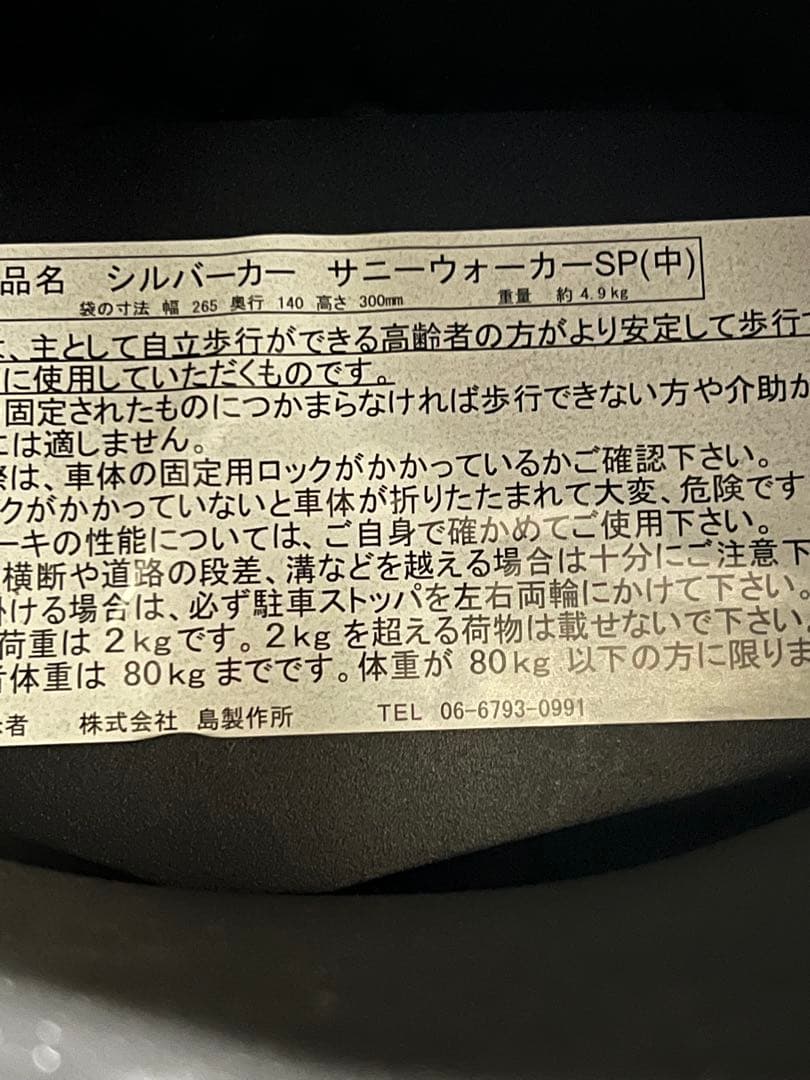 品名 シルバーカー サニーウォーカーSP(中)
袋の寸法 幅 265 奥行 140 高さ 300mm 重量 約4.9kg
、主として自立歩行ができる高齢者の方がより安定して歩行
に使用していただくものです。
固定されたものにつかまらなければ歩行できない方や介助が
には適しません。
は、車体の固定用ロックがかかっているかご確認下さい。
クがかかっていないと車体が折りたたまれて大変、危険です
ーキの性能については、ご自身で確かめてご使用下さい。
横断や道路の段差、溝などを越える場合は十分にご注意下
ける場合は、必ず駐車ストッパを左右両輪にかけて下さい。
荷重は2kgです。2kgを超える荷物は載せないで下さい。
体重は80kgまでです。体重が80kg以下の方に限りま
者 株式会社 島製作所 TEL 06-6793-0991